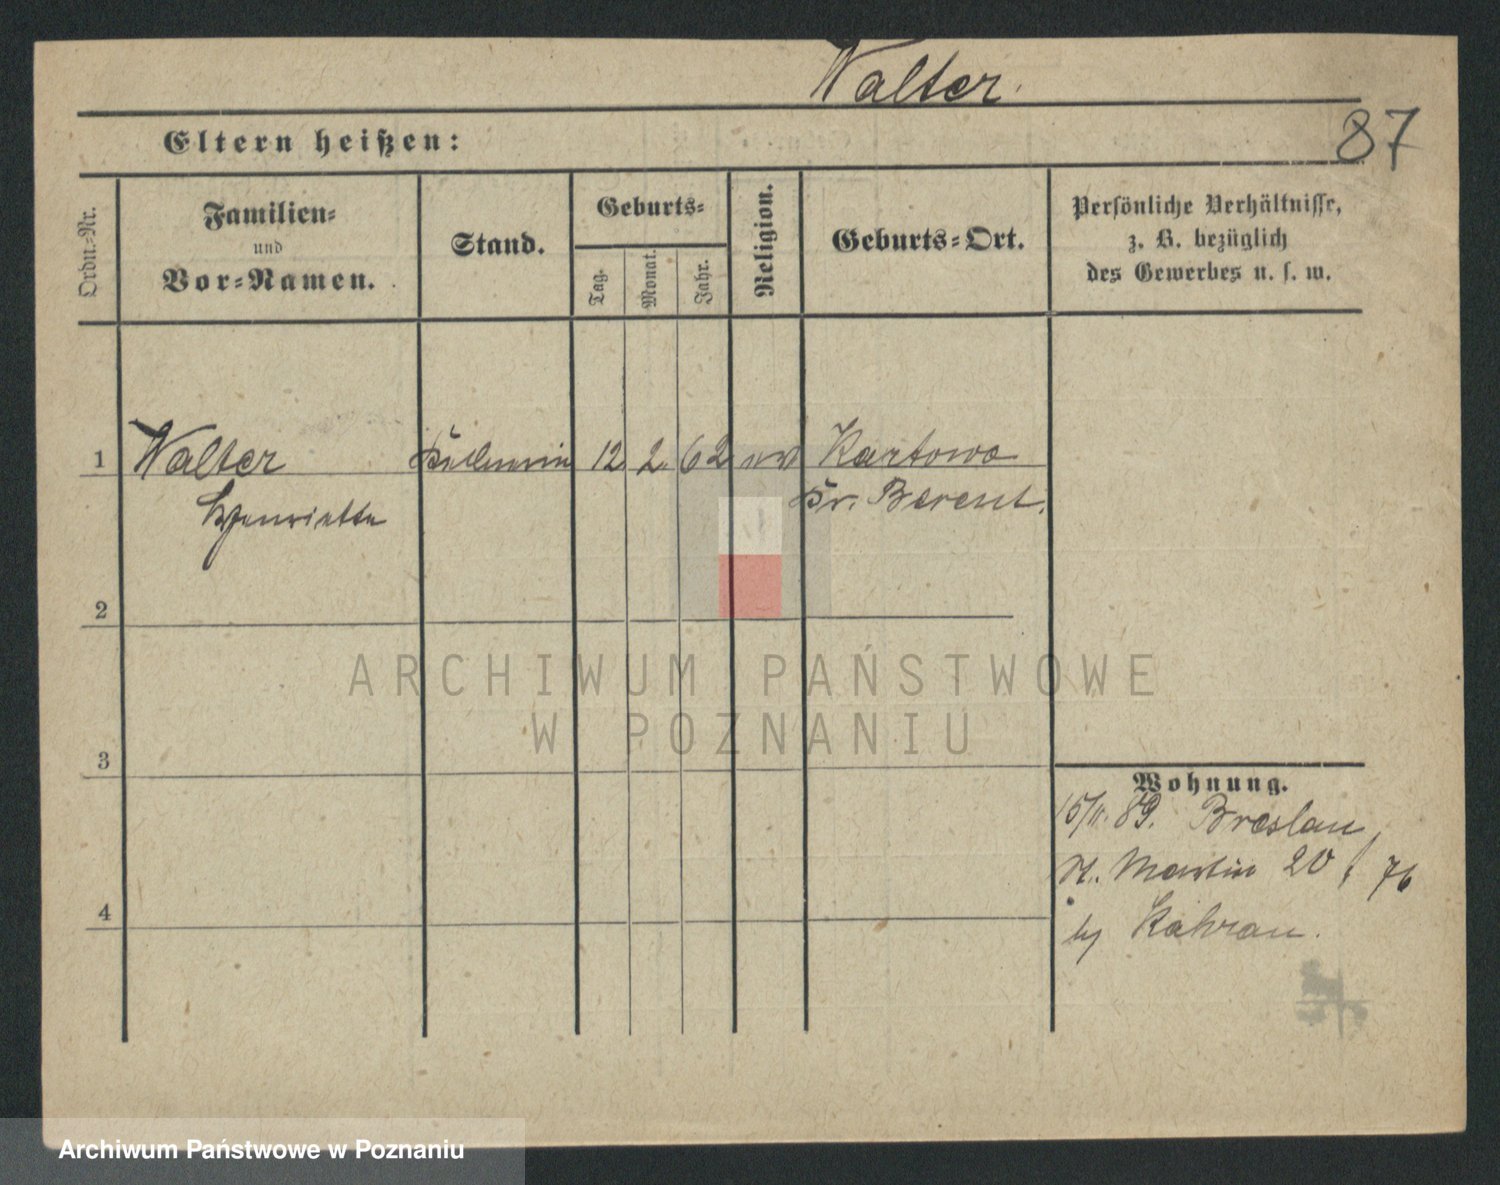 Walter.
87
Eltern heißen:
Ordn.=Nr.
Familien=
und
Vor=Namen.
Stand.
Geburts=
Tag.
Monat.
Jahr.
Religion.
Geburts=Ort.
Persönliche Verhältnisse,
z. B. bezüglich
des Gewerbes u. s. w.
1 Walter 12 2. 62 Kartowo
Henriette Kr. Berent.
2
3
4
Wohnung.
15/11. 89. Breslau
St. Martin 20 76
Kahran.
ARCHIWUM PAŃSTWOWE
W POZNANIU
Archiwum Państwowe w Poznaniu